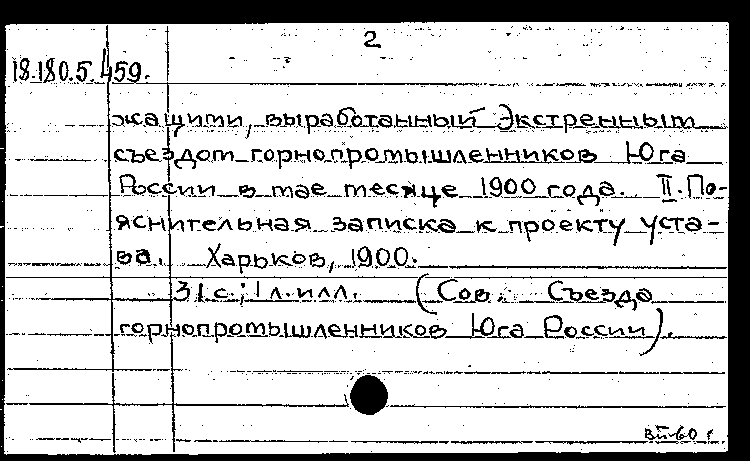 2
18.180.5.459.
жащими, выработанный Экстренным
съездом горнопромышленников Юга
России в мае месяце 1900 года. II. По-
яснительная записка к проекту уста-
ва. Харьков, 1900.
31 с.; 1 л. илл. (Сов. Съезда
горнопромышленников Юга России).